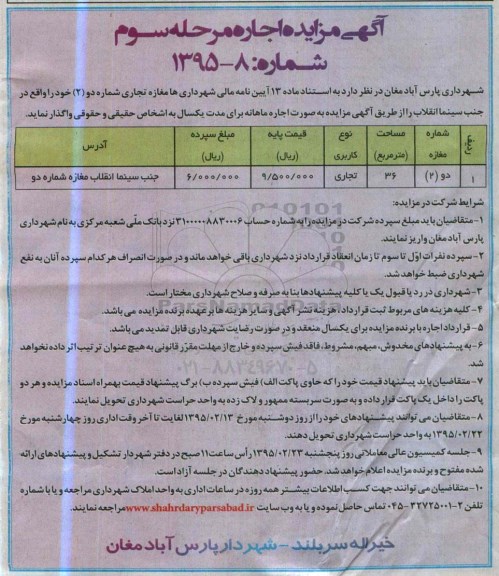 آگهی مزایده اجاره مرحله سوم
شماره: ۸-۱۳۹۵
شهرداری پارس آباد مغان در نظر دارد به استناد ماده ۱۳ آیین نامه مالی شهرداری ها مغازه تجاری شماره دو (۲) خود را واقع در
جنب سینما انقلاب را از طریق آگهی مزایده به صورت اجاره ماهانه برای مدت یکسال به اشخاص حقیقی و حقوقی واگذار نماید.
ردیف شماره مغازه مساحت (مترمربع) نوع کاربری قیمت پایه (ریال) مبلغ سپرده (ریال) آدرس
۱ دو (۲) ۳۶ تجاری ۹/۵۰۰/۰۰۰ ۶/۰۰۰/۰۰۰ جنب سینما انقلاب مغازه شماره دو
شرایط شرکت در مزایده:
۱- متقاضیان باید مبلغ سپرده شرکت در مزایده را به شماره حساب ۳۱۰۰۰۰۰۸۸۳۰۰۶ نزد بانک ملّی شعبه مرکزی به نام شهرداری
پارس آباد مغان واریز نمایند.
۲- سپرده نفرات اوّل تا سوم تا زمان انعقاد قرارداد نزد شهرداری باقی خواهد ماند و در صورت انصراف هر کدام سپرده آنان به نفع
شهرداری ضبط خواهد شد.
۳- شهرداری در رد یا قبول یک یا کلیه پیشنهادها بنا به صرفه و صلاح شهرداری مختار است.
۴- کلیه هزینه های مربوط ثبت قرارداد، هزینه نشر آگهی و سایر هزینه ها بر عهده برنده مزایده می باشد.
۵- قرارداد اجاره با برنده مزایده برای یکسال منعقد و در صورت رضایت شهرداری قابل تمدید می باشد.
۶- به پیشنهادهای مخدوش، مبهم، مشروط، فاقد فیش سپرده و خارج از مهلت مقرّر قانونی به هیچ عنوان ترتیب اثر داده نخواهد
شد.
۷- متقاضیان باید پیشنهاد قیمت خود را که حاوی پاکت الف) فیش سپرده ب) برگ پیشنهاد قیمت بهمراه اسناد مزایده و هر دو
پاکت را داخل یک پاکت قرار داده و به صورت سربسته ممهور و لاک زده به واحد حراست شهرداری تحویل نمایند.
۸- متقاضیان می توانند پیشنهادهای خود را از روز دوشنبه مورخ ۱۳۹۵/۰۲/۱۳ لغایت تا آخر وقت اداری روز چهارشنبه مورخ
۱۳۹۵/۰۲/۲۲ به واحد حراست شهرداری تحویل دهند.
۹- جلسه کمیسیون عالی معاملاتی روز پنجشنبه ۱۳۹۵/۰۲/۲۳ رأس ساعت ۱۱ صبح در دفتر شهردار تشکیل و پیشنهادهای ارائه
شده مفتوح و برنده مزایده اعلام خواهد شد. حضور پیشنهاد دهندگان در جلسه آزاد است.
۱۰- متقاضیان می توانند جهت کسب اطلاعات بیشتر همه روزه در ساعات اداری به واحد املاک شهرداری مراجعه و یا با شماره
تلفن ۲-۳۲۷۲۵۰۰۱-۰۴۵ تماس حاصل نموده و یا به وب سایت www.shahrdaryparsabad.ir مراجعه نمایند.
خیراله سربلند - شهردار پارس آباد مغان
ParsNamadData
۰۲۱-۸۸۳۴۹۶۷۰-۵